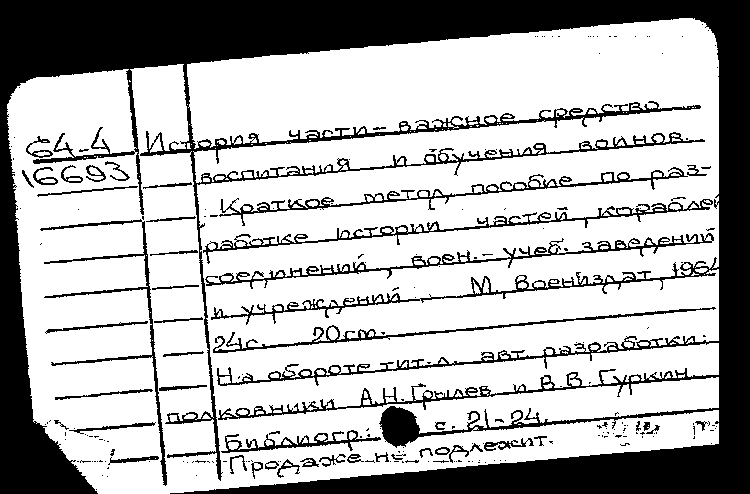 64-4 История части - важное средство
16693 воспитания и обучения воинов.
Краткое метод. пособие по раз-
работке истории частей, кораблей
соединений, воен.-учеб. заведений
и учреждений. М., Воениздат, 1964
24с. 20см.
На обороте тит. л. авт. разработки:
полковники А.Н. Грылев и В.В. Гуркин
Библиогр.: с. 21-24.
Продаже не подлежит.